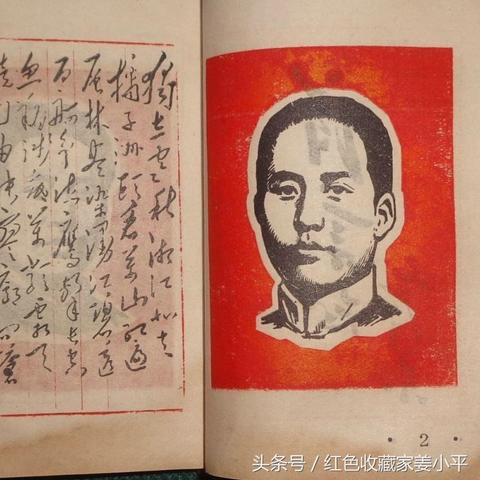 獨立寒秋湘江北去
橘子洲頭看萬山紅遍
层林尽染漫江碧透
百舸争流鷹擊长空
鱼翔浅底萬類霜天
竞自由怅寥廓问蒼
· 2 ·
头条号/红色收藏家姜小平